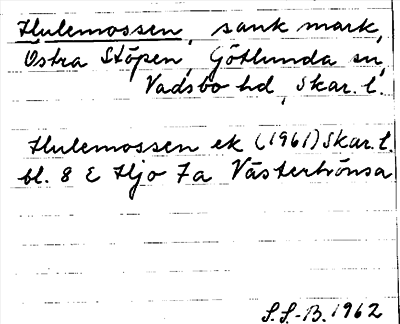 Hulemossen, sank mark,
Östra Stöpen, Götlunda sn,
Vadsbo hd, Skar. l.
Hulemossen ek (1961) Skar. l.
bl. 8 E Hjo 7a Västerbrónsa
S.S.-B. 1962